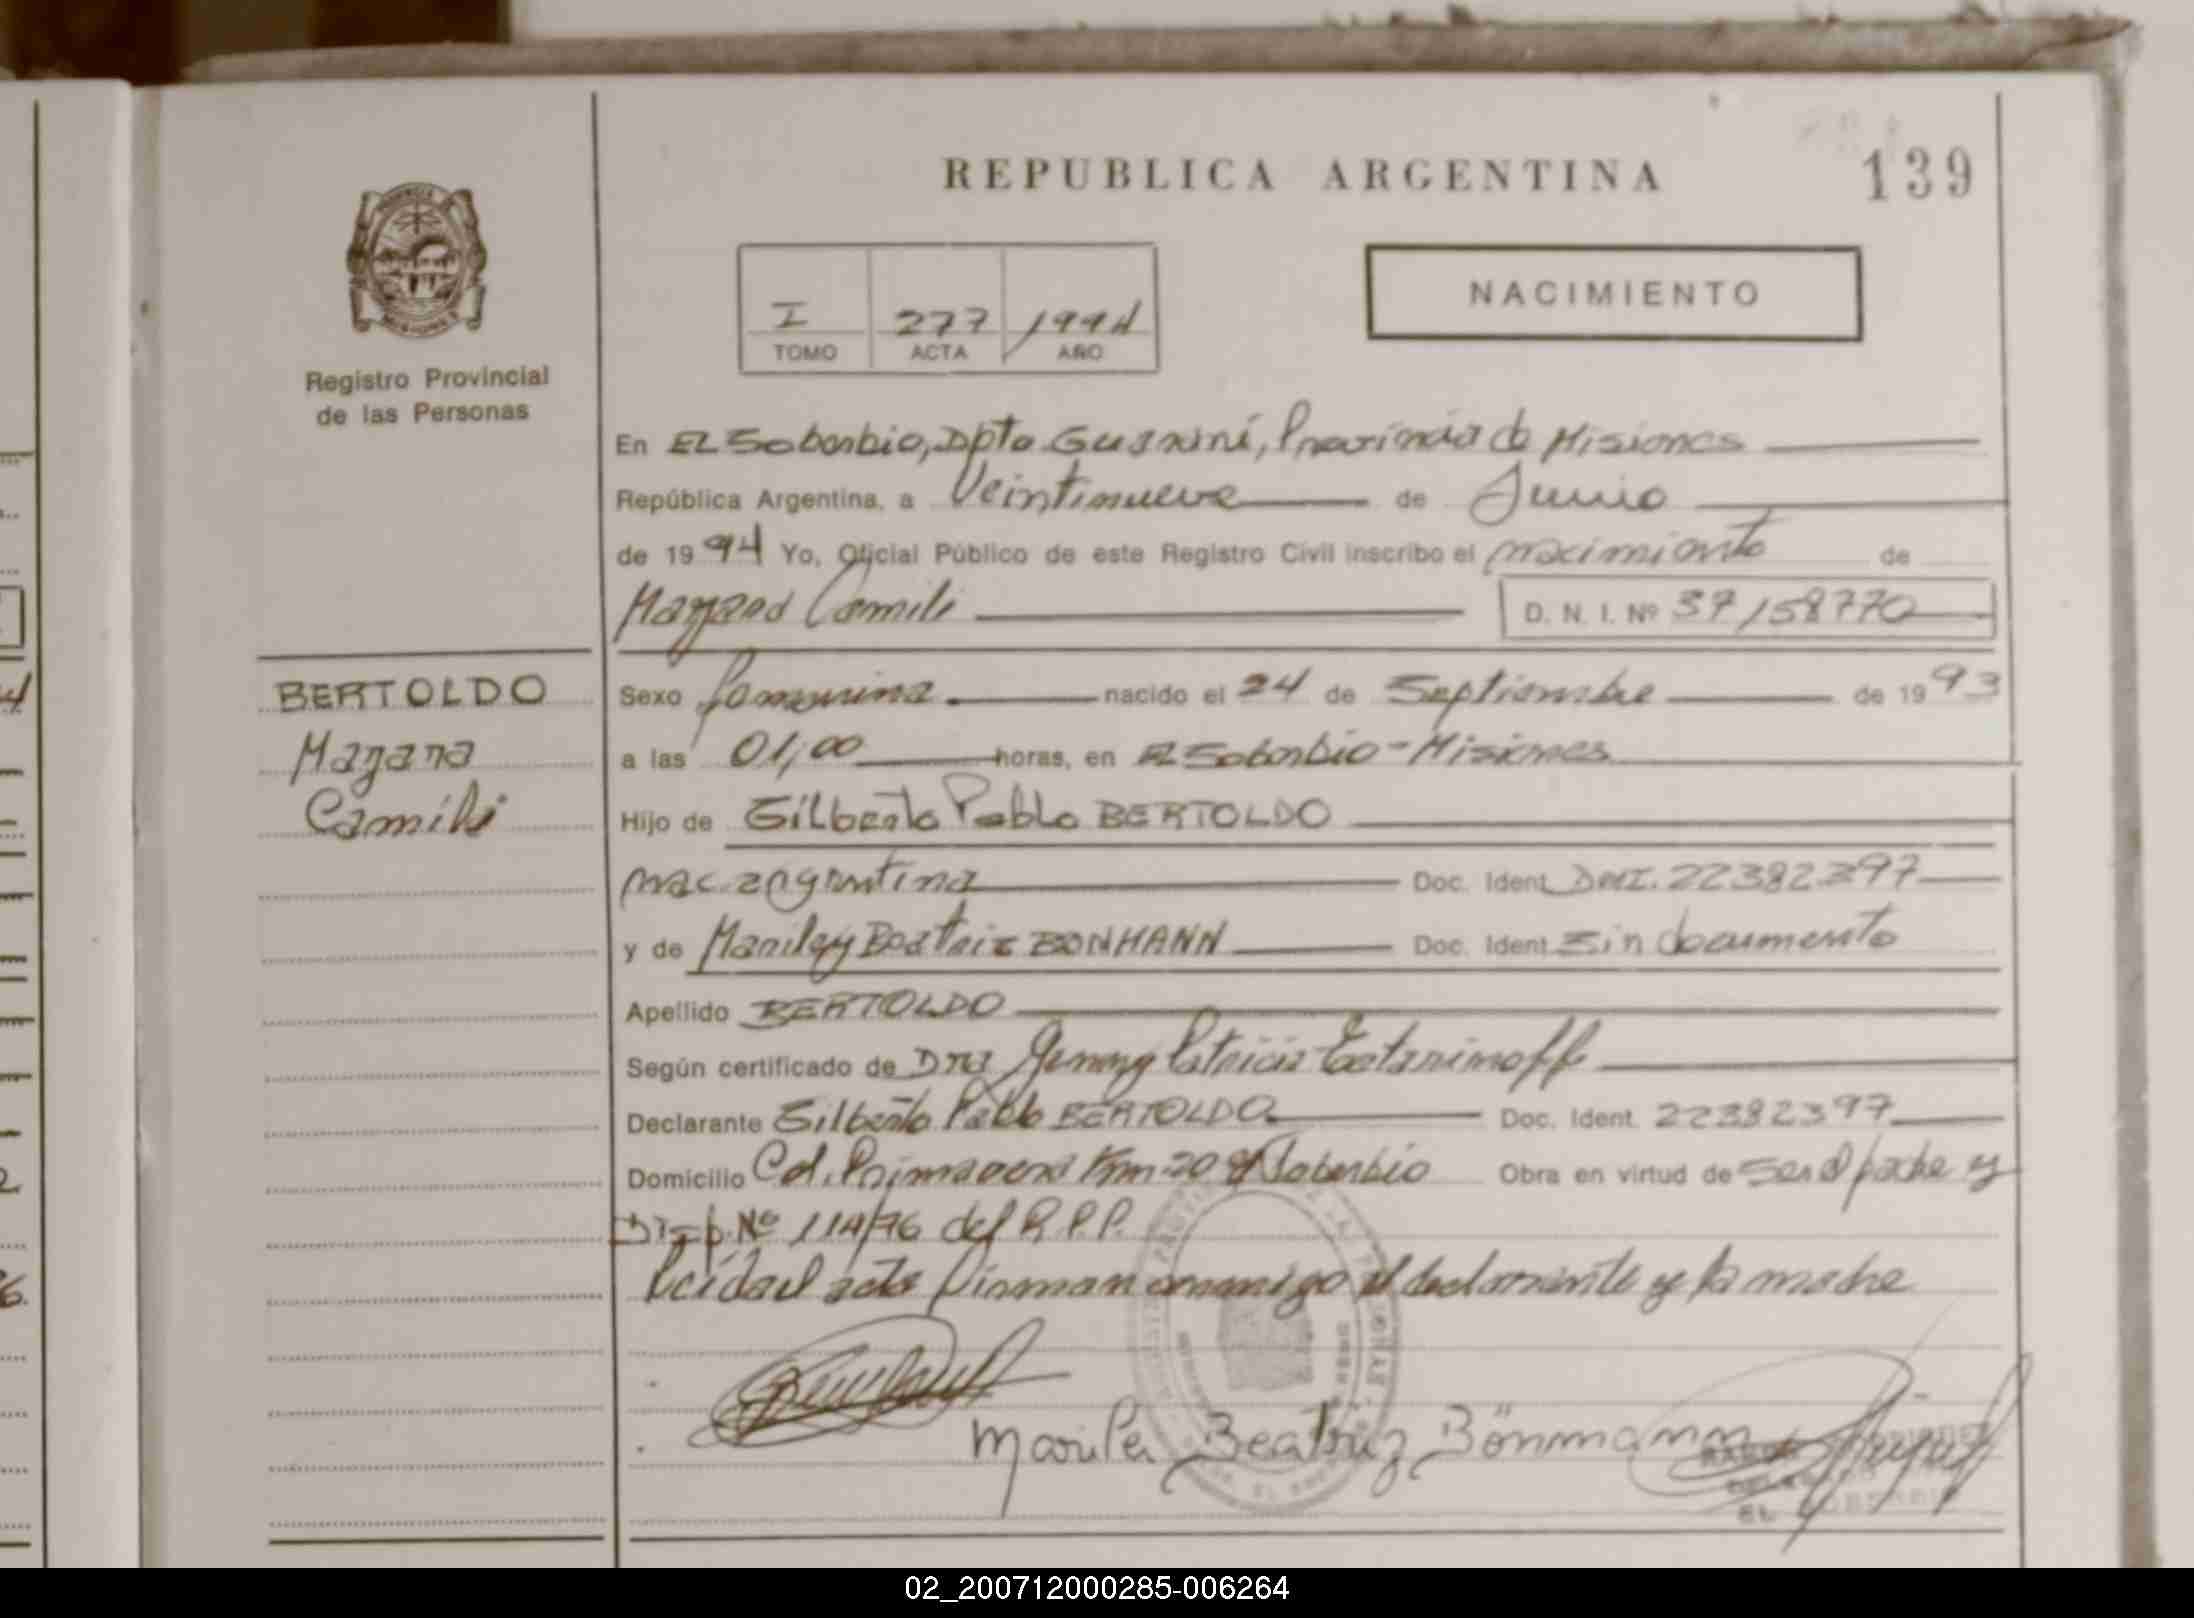 REPUBLICA ARGENTINA
139
NACIMIENTO
I 277 1994
TOMO ACTA AÑO
Registro Provincial
de las Personas
En El Soberbio, Dpto Guaraní, Provincia de Misiones
República Argentina, a Veintinueve de Junio
de 1994 Yo, Oficial Público de este Registro Civil inscribo el nacimiento de
Camila
D. N. I. Nº 37158770
BERTOLDO
Camila
Sexo femenina nacido el 24 de Septiembre de 1993
a las 01,00 horas, en El Soberbio - Misiones
Hijo de Gilberto Pablo BERTOLDO
nac. argentina Doc. Ident. DNI. 22382397
y de Beatriz BONMANN Doc. Ident. Sin documento
Apellido BERTOLDO
Según certificado de Dra Patricia
Declarante Gilberto Pablo BERTOLDO Doc. Ident. 22382397
Domicilio Col. Primavera Km. 20 El Soberbio Obra en virtud de ser el padre y
Disp. Nº 114/76 del R.P.P.
Leída el acta firman conmigo el declarante y la madre
Beatriz Bönmann
EL SOBERBIO
02_200712000285-006264